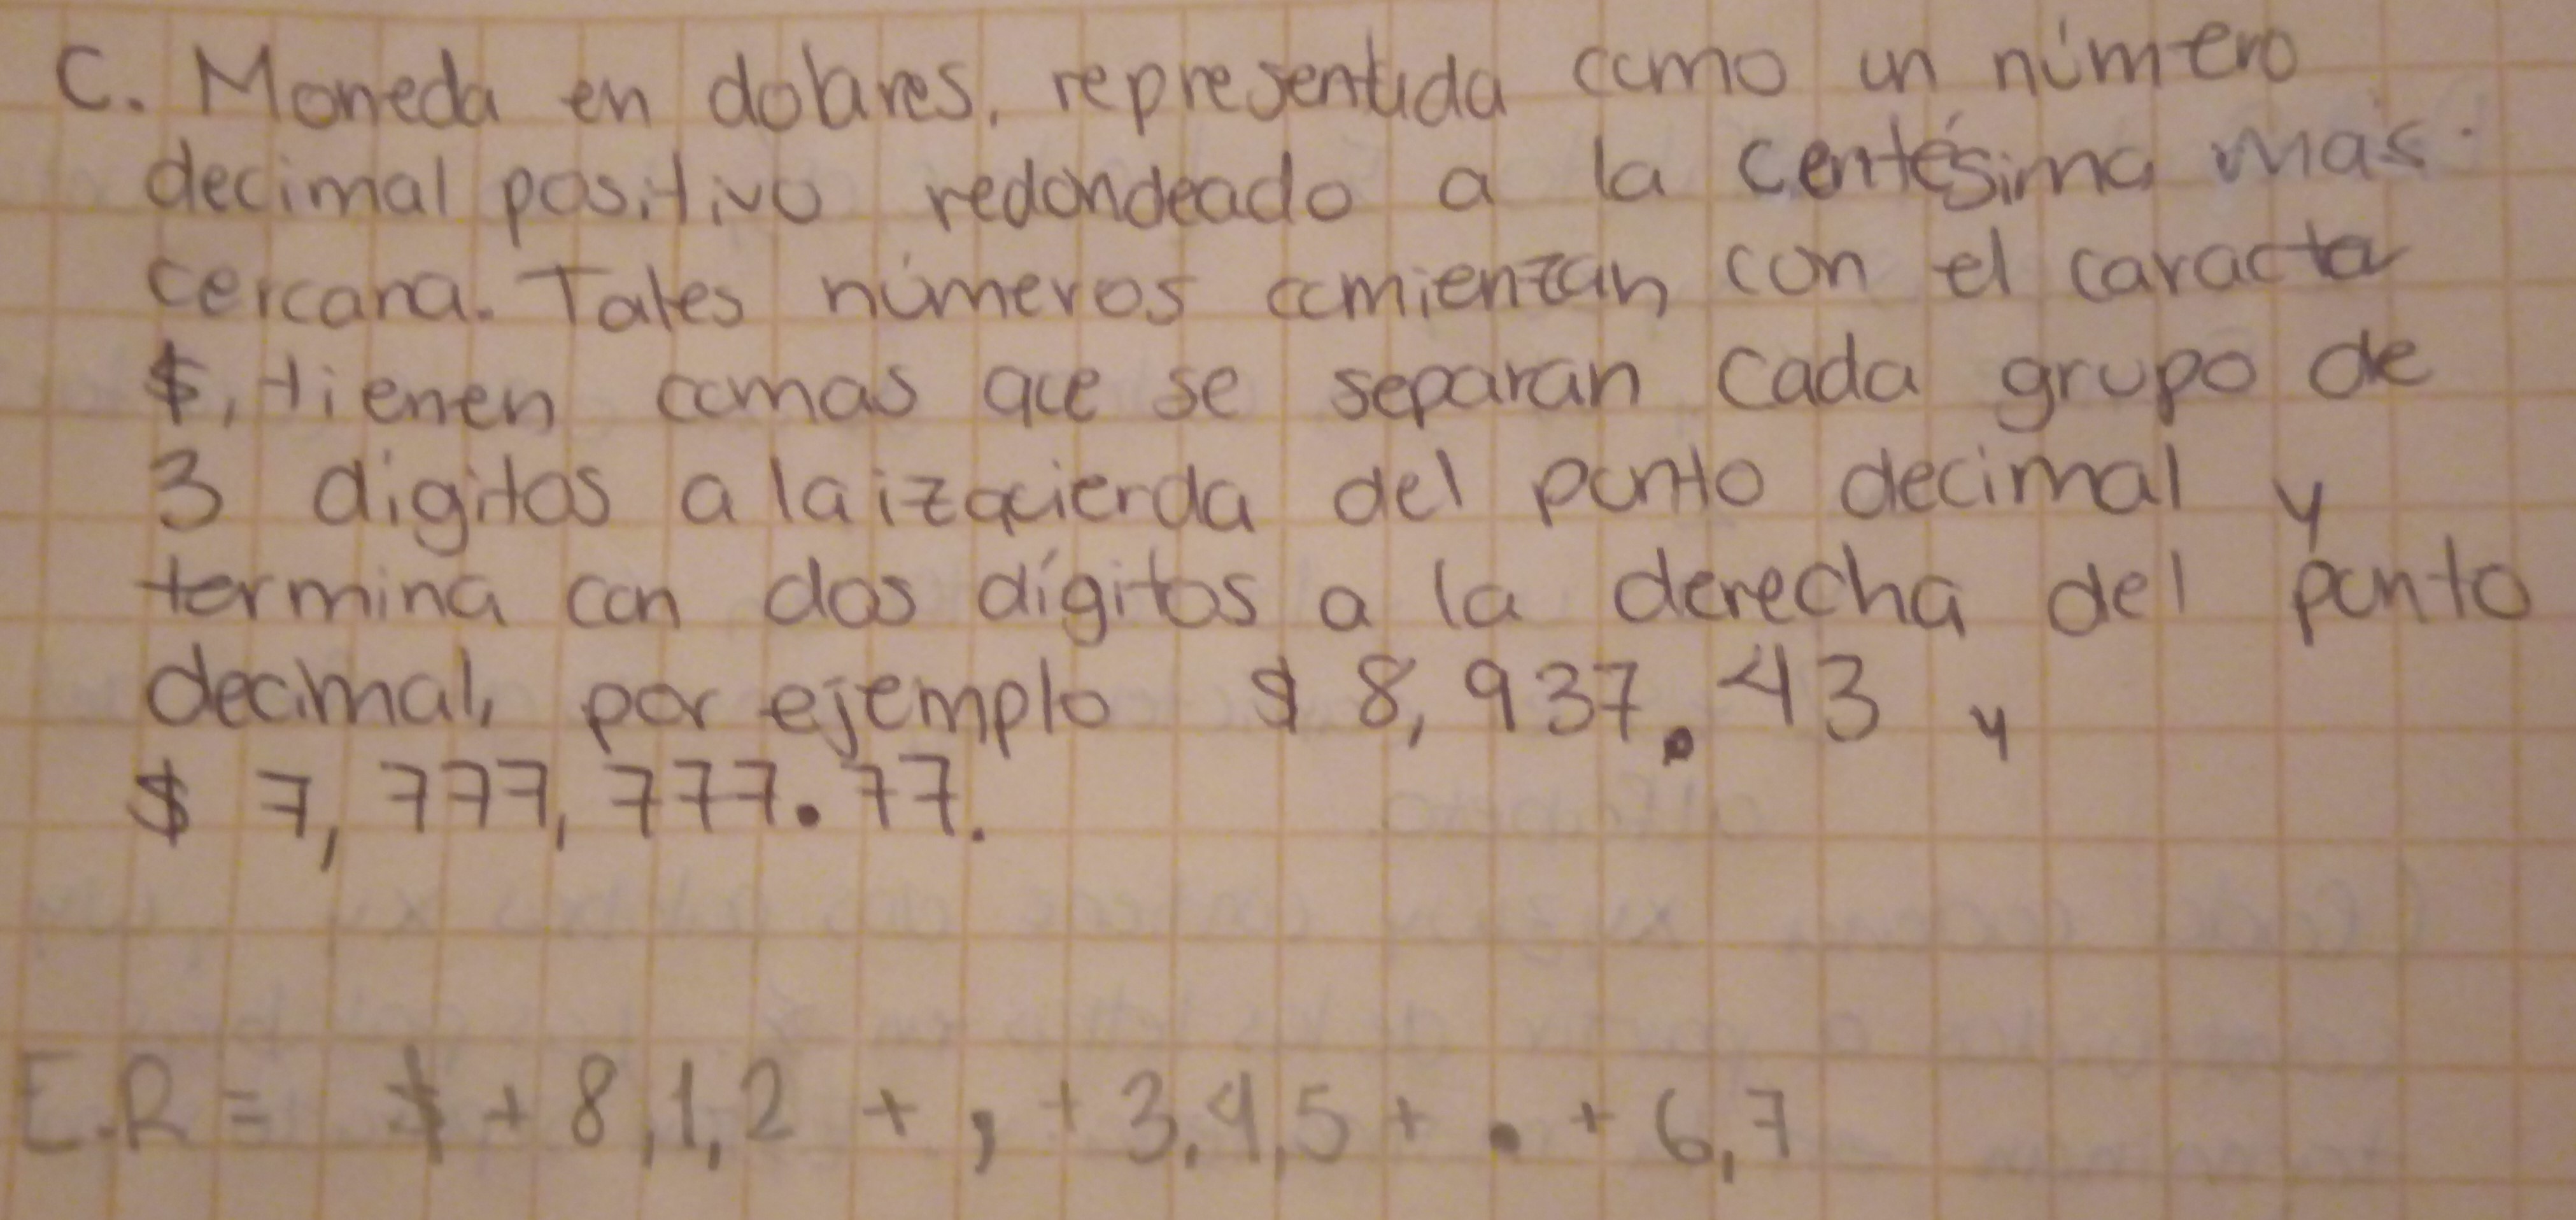 C. Moneda en dolares, representada como un número
decimal positivo redondeado a la centésima más
cercana. Tales números comienzan con el caracter
$, tienen comas que se separan cada grupo de
3 digitos a la izquierda del punto decimal y
termina con dos dígitos a la derecha del punto
decimal, por ejemplo $ 8,937.43 y
$ 7,777,777.77.
E.R = $ + 8,1,2 + , + 3,4,5 + . + 6,7